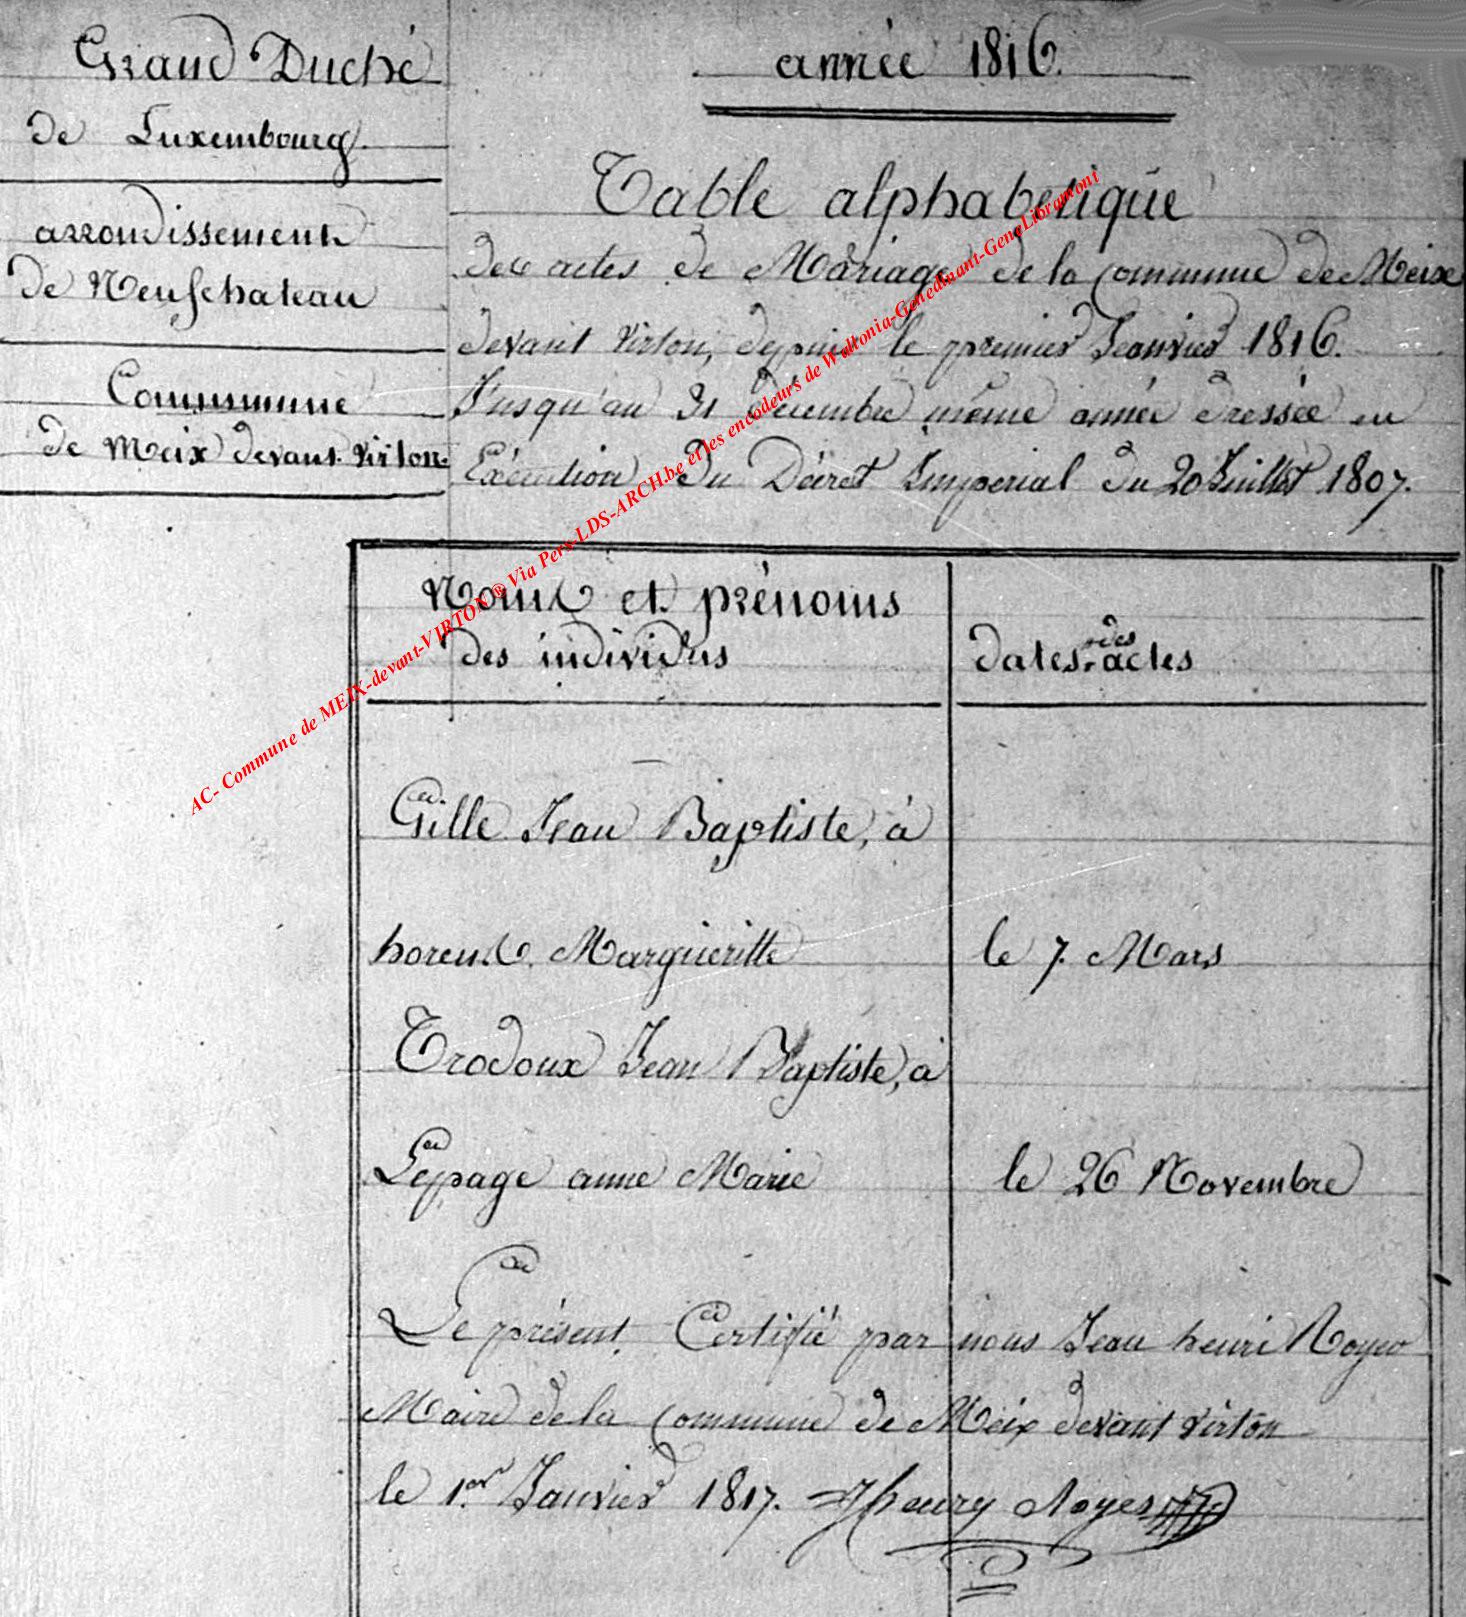 Grand Duché
de Luxembourg
arrondissement
de Neufchateau
Commune
de Meix devant Virton
année 1816.
Table alphabetique
des actes de Mariage de la Commune de Meix
devant Virton, depuis le premier Janvier 1816.
Jusqu'au 31 Décembre même année dressée en
Exécution du Décret Imperial du 20 Juillet 1807.
Noms et prénoms
des individus
dates des actes
Gille Jean Baptiste, à
Margueritte
le 7. Mars
Trodoux Jean Baptiste, à
Lepage anne Marie
le 26 Novembre
Le présent Certifié par nous Jean henri
Maire de la Commune de Meix devant virton
le 1.er Janvier 1817.
AC- Commune de MEIX-devant-VIRTON® Via Pers-LDS-ARCH.be et les encodeurs de Waltonia-Genedinant-GeneLibramont